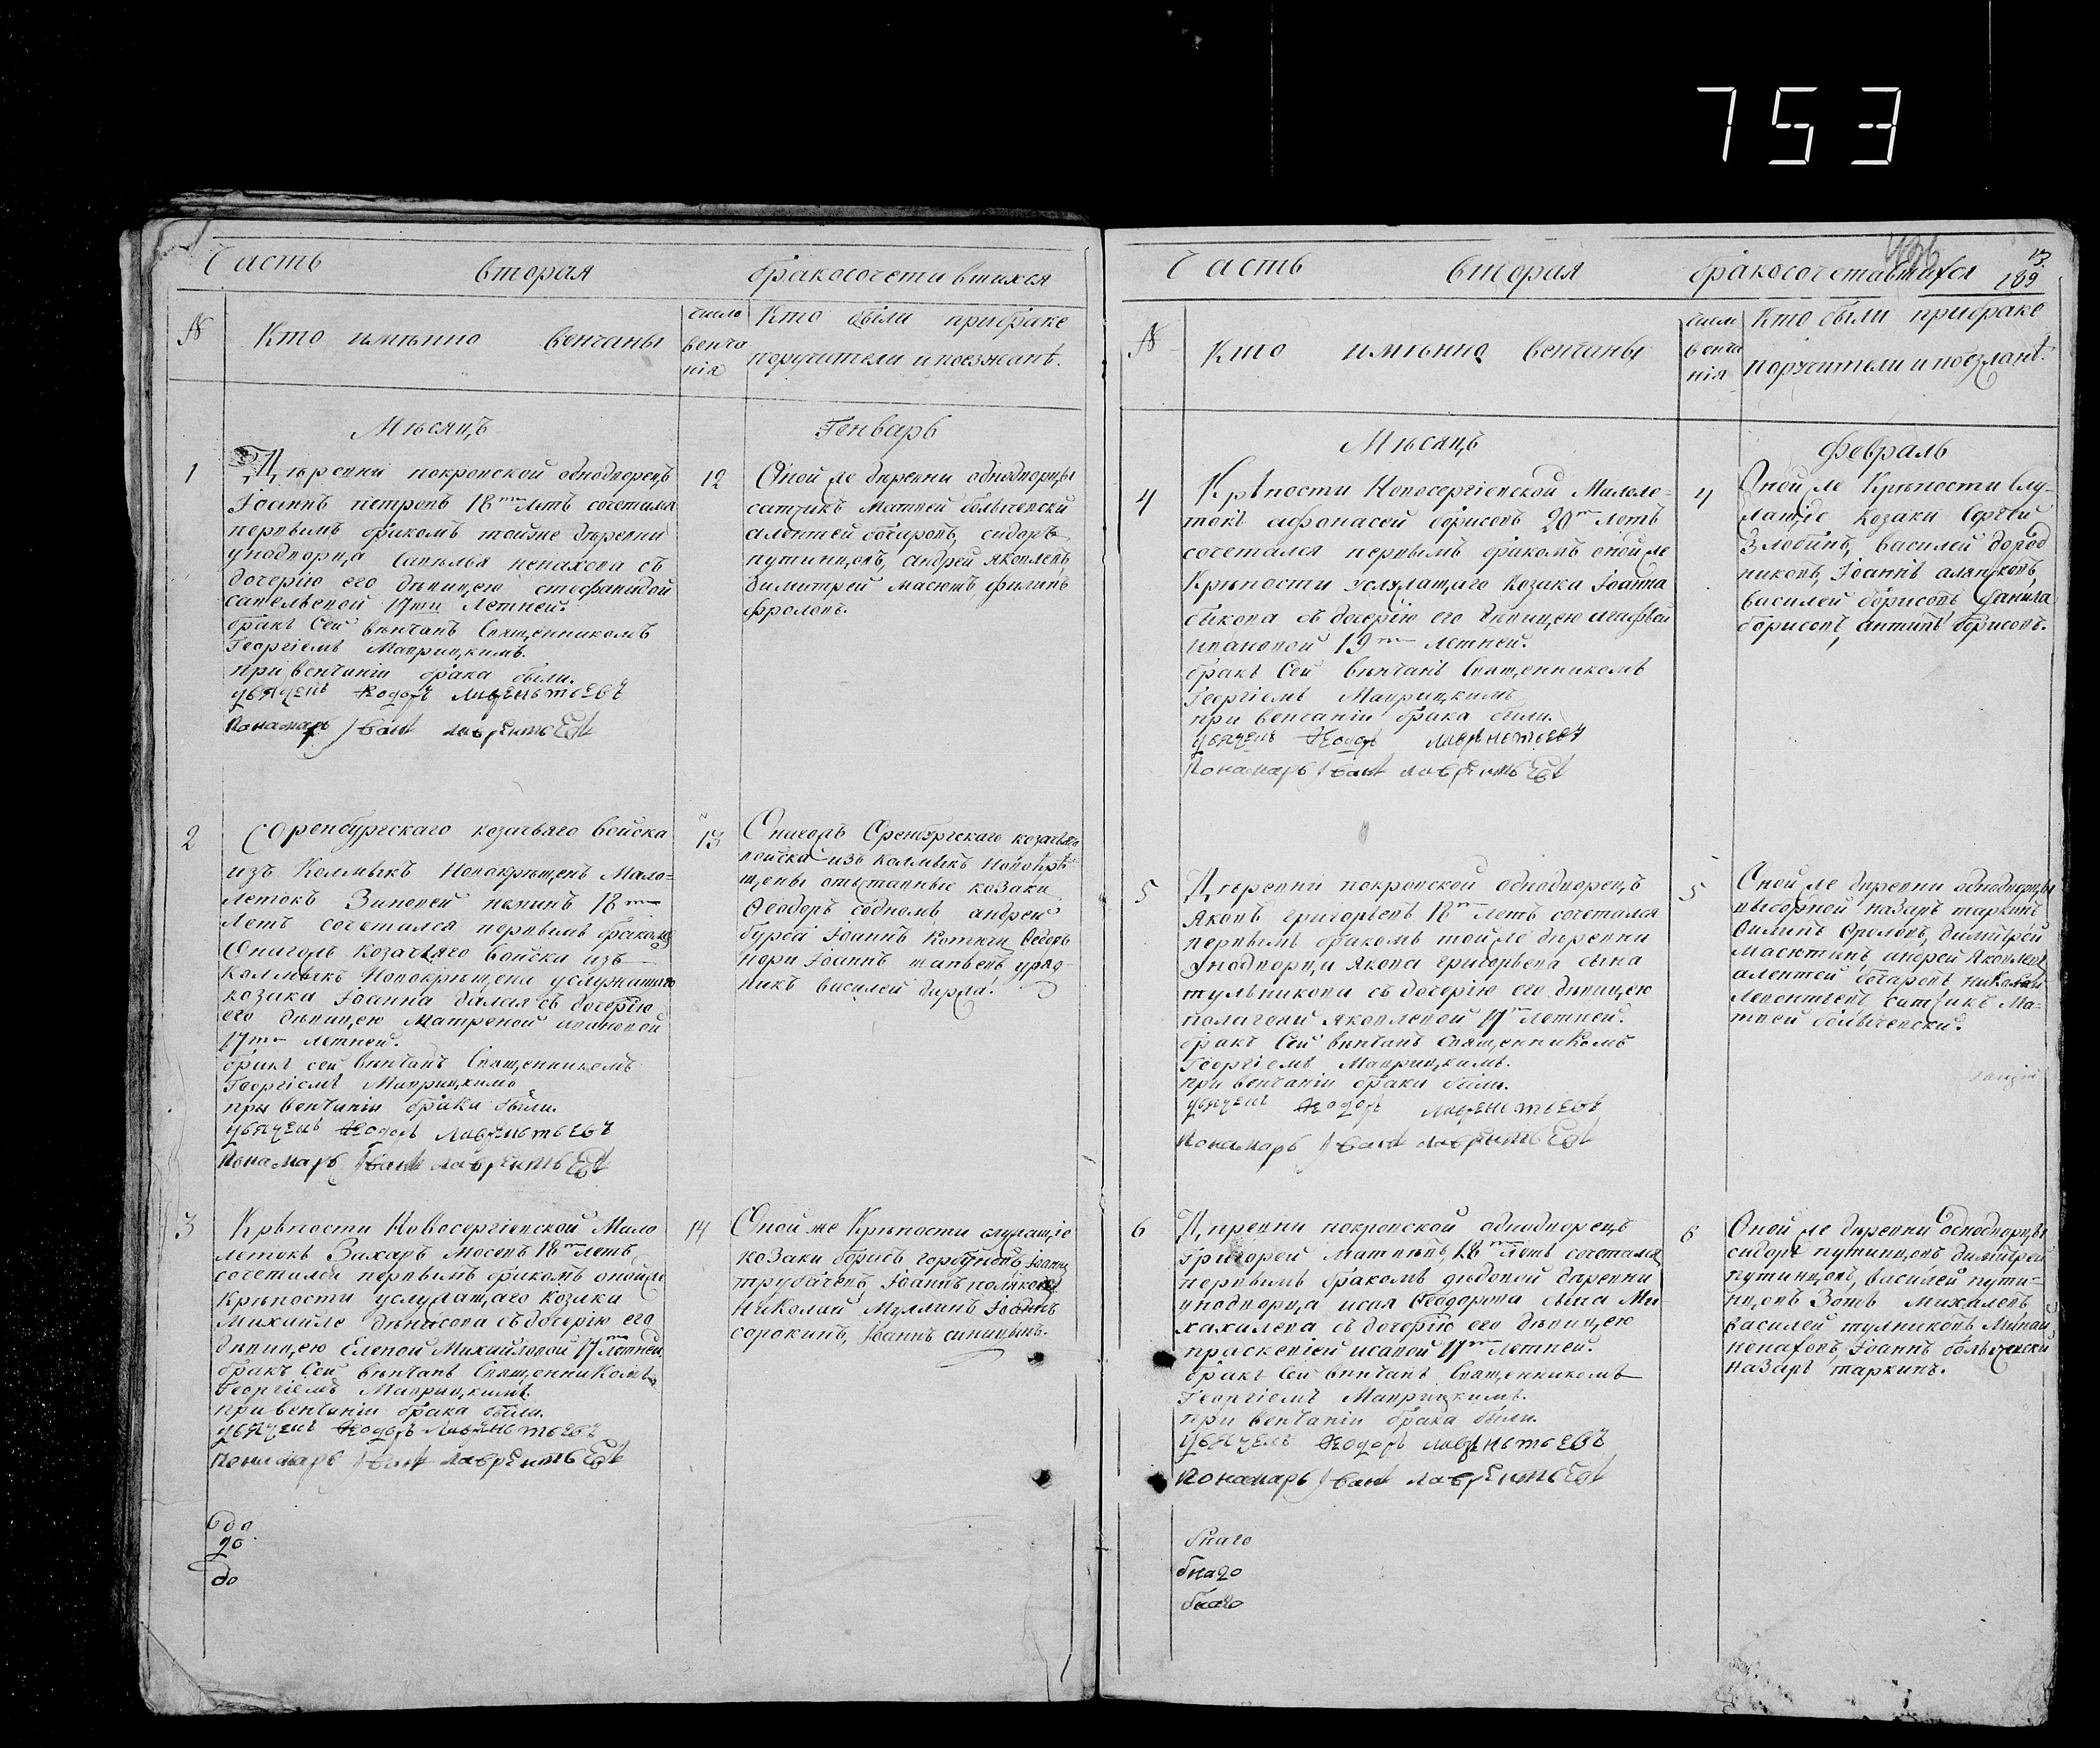 753
Часть вторая бракосочетавшихся
№ Кто имѣнно венчаны
число венчанія
Кто были прибраке
поручители и поезжанѣ.
Мѣсяцъ Генварь
1
Деревни покровской однодворецъ
Іоаннъ петровъ 18 летъ сочетался
первымъ бракомъ тойже деревни
уноднорца Савелья ненахова съ
дочерію его дѣвицею стефанидой
савельевой 17ти летней.
бракъ Сей вѣнчанъ Священникомъ
Георгіемъ Маврицкимъ.
при венчаніи брака были.
дьячекъ Ѳеодоръ лаврентьевъ
Пономарь Іванъ лаврентьевъ
12
Оной же деревни однодворцы
сотникъ Матвей
алентей сидоръ
путинцовъ, андрей яковлевъ
димитрей масютъ филипъ
фроловъ.
2
Оренбургскаго козачьяго войска
изъ Колмыкъ Новокрещенъ Мало=
летокъ Зиновей 18
летъ сочетался первымъ бракомъ
Онагожъ козачьяго войска изъ
колмыкъ Новокрещена услужащаго
козака Іоанна далая съ дочерію
его дѣвицею Матреной ивановой
17 летней.
бракъ сей вѣнчанъ Священникомъ
Георгіемъ Маврицкимъ
при венчаніи брака были.
дьячекъ Ѳеодоръ Лаврентьевъ
Пономарь Іванъ лаврентьевъ
13
Онагожъ Оренбургскаго козачьяго
войска изъ колмыкъ новокре-
щены отставные козаки
Ѳеодоръ андрей
Іоаннъ Ѳедоръ
Іоаннъ уряд-
никъ василей
3
Крѣпости Новосергіевской Мало
летокъ Захаръ 18 летъ
сочетался первымъ бракомъ онойже
крѣпости услужащаго козака
Михаиле денисова съ дочерію его
дѣвицею Еленой Михайловой 17 летней
бракъ Сей вѣнчанъ Священникомъ
Георгіемъ Маврицкимъ.
привенчаніи брака были.
дьячекъ Ѳеодоръ Лаврентьевъ
Пономарь Іванъ лаврентьевъ
14
Оной же Крѣпости служащіе
козаки борисъ горбуновъ Іоаннъ
трубачевъ, Іоаннъ поляковъ
Николай Муллинъ Іоаннъ
сорокинъ, Іоаннъ синицынъ.
до
до
Часть вторая бракосочетавшихся
189
№ Кто имѣнно венчаны
число венчанія
Кто были прибраке
поручители и поезжанѣ.
Мѣсяцъ Февраль
4
Крѣпости Новосергіевской Малоле-
токъ афонасей борисовъ 20 летъ
сочетался первымъ бракомъ онойже
Крѣпости услужащаго козака Іоанна
быкова съ дочерію его дѣвицею агафьей
ивановой 19 летней.
бракъ Сей вѣнчанъ Священникомъ
Георгіемъ Маврицкимъ
при венчаніи брака были.
дьячекъ Ѳеодоръ лаврентьевъ
Пономарь Іванъ лаврентьевъ
4
Оной же Крѣпости Слу-
жащіе козаки Сергей
Злобинъ, василей дород
никовъ, Іоаннъ
василей борисовъ данила
борисовъ, антипъ борисовъ.
5
Деревни покровской однодворецъ
Яковъ григорьевъ 18 летъ сочетался
первымъ бракомъ тойже деревни
уноднорца Якова григорьева сына
тульникова съ дочерію его дѣвицею
пелагеей яковлевой 17 летней.
бракъ Сей вѣнчанъ Священникомъ
Георгіемъ Маврицкимъ.
при венчаніи брака были.
дьячекъ Ѳеодоръ лаврентьевъ
Пономарь Іванъ лаврентьевъ
5
Оной же деревни однодворцы
выборной назаръ таркинъ
Филипъ Фроловъ, димитрей
масютинъ, андрей Яковлевъ
алентей Николай
Леонтьевъ сотникъ Ма-
твей
6
Деревни покровской однодворецъ
Григорей Матвѣевъ, 18 летъ сочетался
первымъ бракомъ дедовой деревни
уноднорца исая Ѳеодорова сына Ми
хахилева съ дочерію его дѣвицею
праскевіей исаевой 17 летней.
бракъ Сей вѣнчанъ Священникомъ
Георгіемъ Маврицкимъ.
при венчаніи брака были.
дьячекъ Ѳеодоръ лаврентьевъ
Пономарь Іванъ лаврентьевъ
6
Оной же деревни однодворцы
сидоръ путинцовъ, димитрей
путинцовъ, василей пути-
нцовъ Зотъ Михалевъ
василей тулниковъ Минай
ненаховъ, Іоаннъ
назаръ таркинъ.